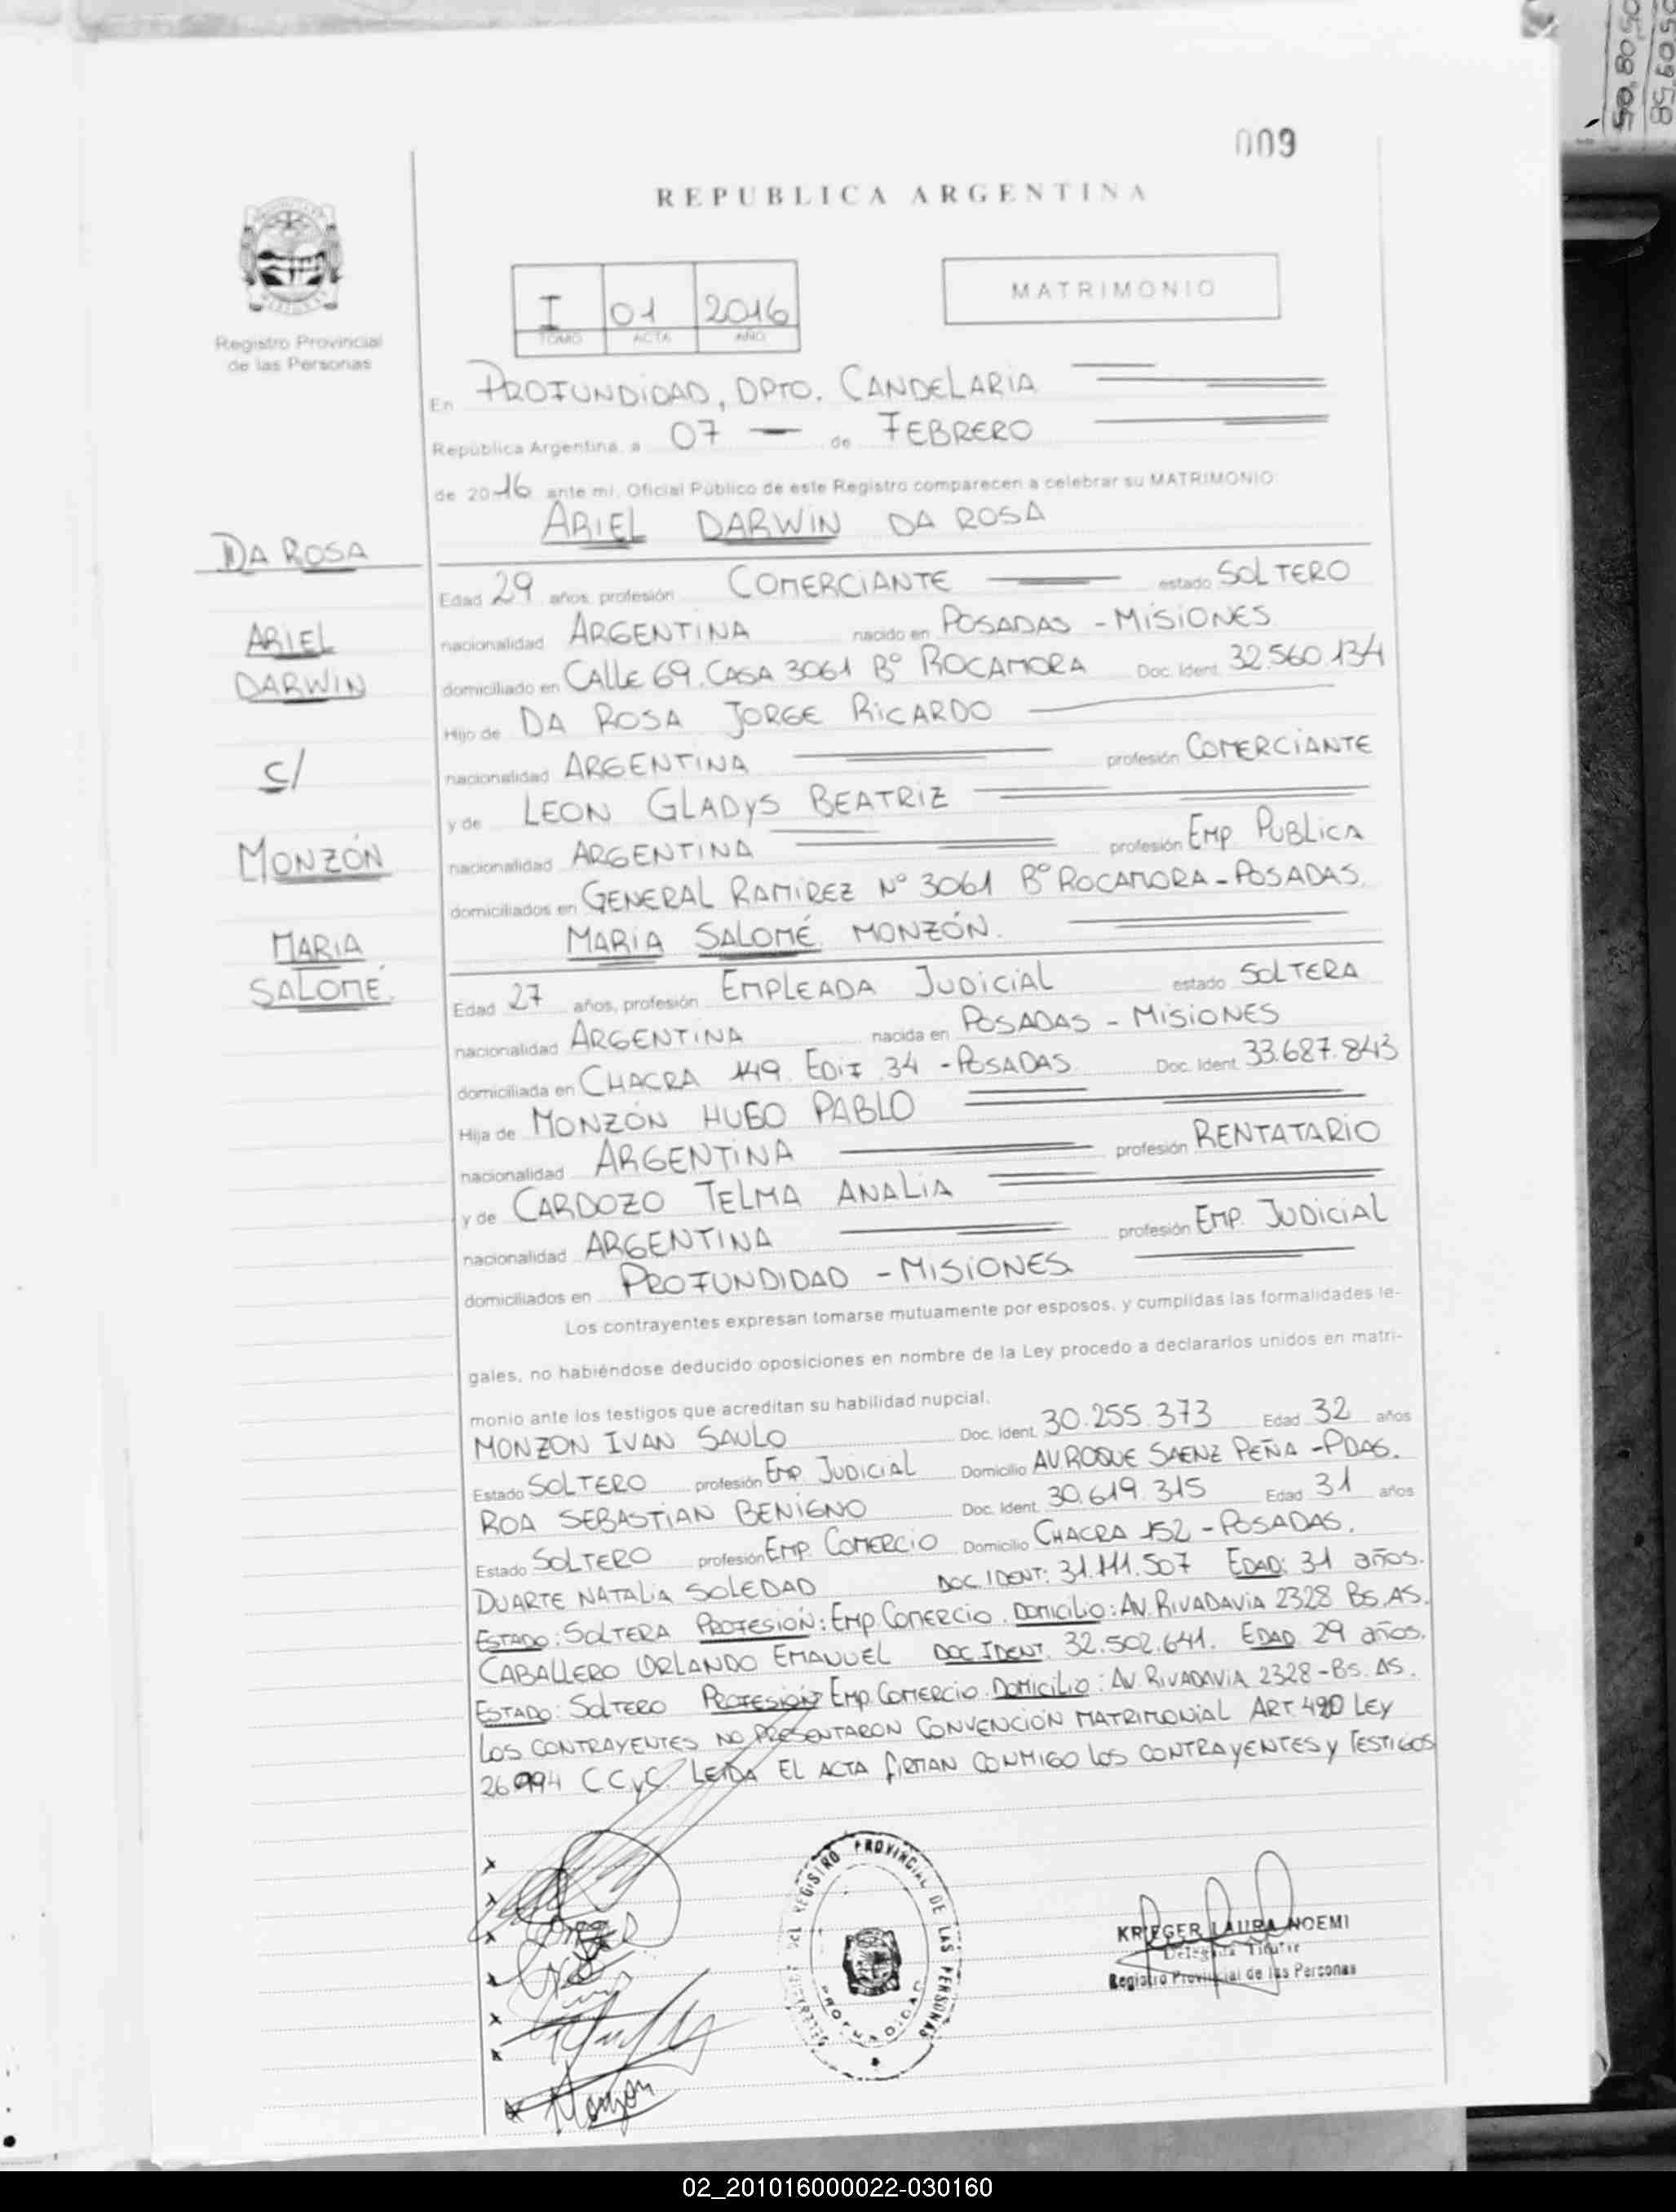 50,80,50
85,60,50
009
REPUBLICA ARGENTINA
Registro Provincial
de las Personas
I 01 2016
TOMO ACTA AÑO
MATRIMONIO
En PROFUNDIDAD, DPTO. CANDELARIA
República Argentina, a 07 — de FEBRERO
de 2016 ante mi, Oficial Público de este Registro comparecen a celebrar su MATRIMONIO:
ARIEL DARWIN DA ROSA
DA ROSA
Edad 29 años, profesión COMERCIANTE estado SOLTERO
ARIEL
nacionalidad ARGENTINA nacido en POSADAS - MISIONES
DARWIN
domiciliado en CALLE 69. CASA 3061 B° ROCAMORA Doc. Ident. 32.560.134
Hijo de DA ROSA JORGE RICARDO
C/
nacionalidad ARGENTINA profesión COMERCIANTE
y de LEON GLADYS BEATRIZ
MONZÓN
nacionalidad ARGENTINA profesión EMP PUBLICA
domiciliados en GENERAL RAMIREZ N° 3061 B° ROCAMORA - POSADAS.
MARIA
MARIA SALOMÉ MONZÓN.
SALOMÉ.
Edad 27 años, profesión EMPLEADA JUDICIAL estado SOLTERA
nacionalidad ARGENTINA nacida en POSADAS - MISIONES
domiciliada en CHACRA 149 EDIF 34 - POSADAS Doc. Ident. 33.687.843
Hija de MONZÓN HUGO PABLO
nacionalidad ARGENTINA profesión RENTATARIO
y de CARDOZO TELMA ANALIA
nacionalidad ARGENTINA profesión EMP. JUDICIAL
domiciliados en PROFUNDIDAD - MISIONES.
Los contrayentes expresan tomarse mutuamente por esposos, y cumplidas las formalidades le-
gales, no habiéndose deducido oposiciones en nombre de la Ley procedo a declararlos unidos en matri-
monio ante los testigos que acreditan su habilidad nupcial.
MONZON IVAN SAULO Doc. Ident. 30.255.373 Edad 32 años
Estado SOLTERO profesión EMP JUDICIAL Domicilio AV ROQUE SAENZ PEÑA - PDAS.
ROA SEBASTIAN BENIGNO Doc. Ident. 30.619.315 Edad 31 años
Estado SOLTERO profesión EMP COMERCIO Domicilio CHACRA 152 - POSADAS.
DUARTE NATALIA SOLEDAD DOC. IDENT: 31.111.507 EDAD: 31 años.
ESTADO: SOLTERA PROFESIÓN: EMP. COMERCIO. DOMICILIO: AV. RIVADAVIA 2328 BS. AS.
CABALLERO ORLANDO EMANUEL DOC. IDENT. 32.502.641. EDAD 29 años.
ESTADO: SOLTERO PROFESIÓN EMP. COMERCIO. DOMICILIO: AV. RIVADAVIA 2328 - BS. AS.
LOS CONTRAYENTES NO PRESENTARON CONVENCIÓN MATRIMONIAL ART. 420 LEY
26.994 C C y C LEIDA EL ACTA FIRMAN CONMIGO LOS CONTRAYENTES y TESTIGOS
DEL REGISTRO PROVINCIAL DE LAS PERSONAS
PROFUNDIDAD
KRIEGER LAURA NOEMI
Delegada Titular
Registro Provincial de las Personas
Monzon
02_201016000022-030160